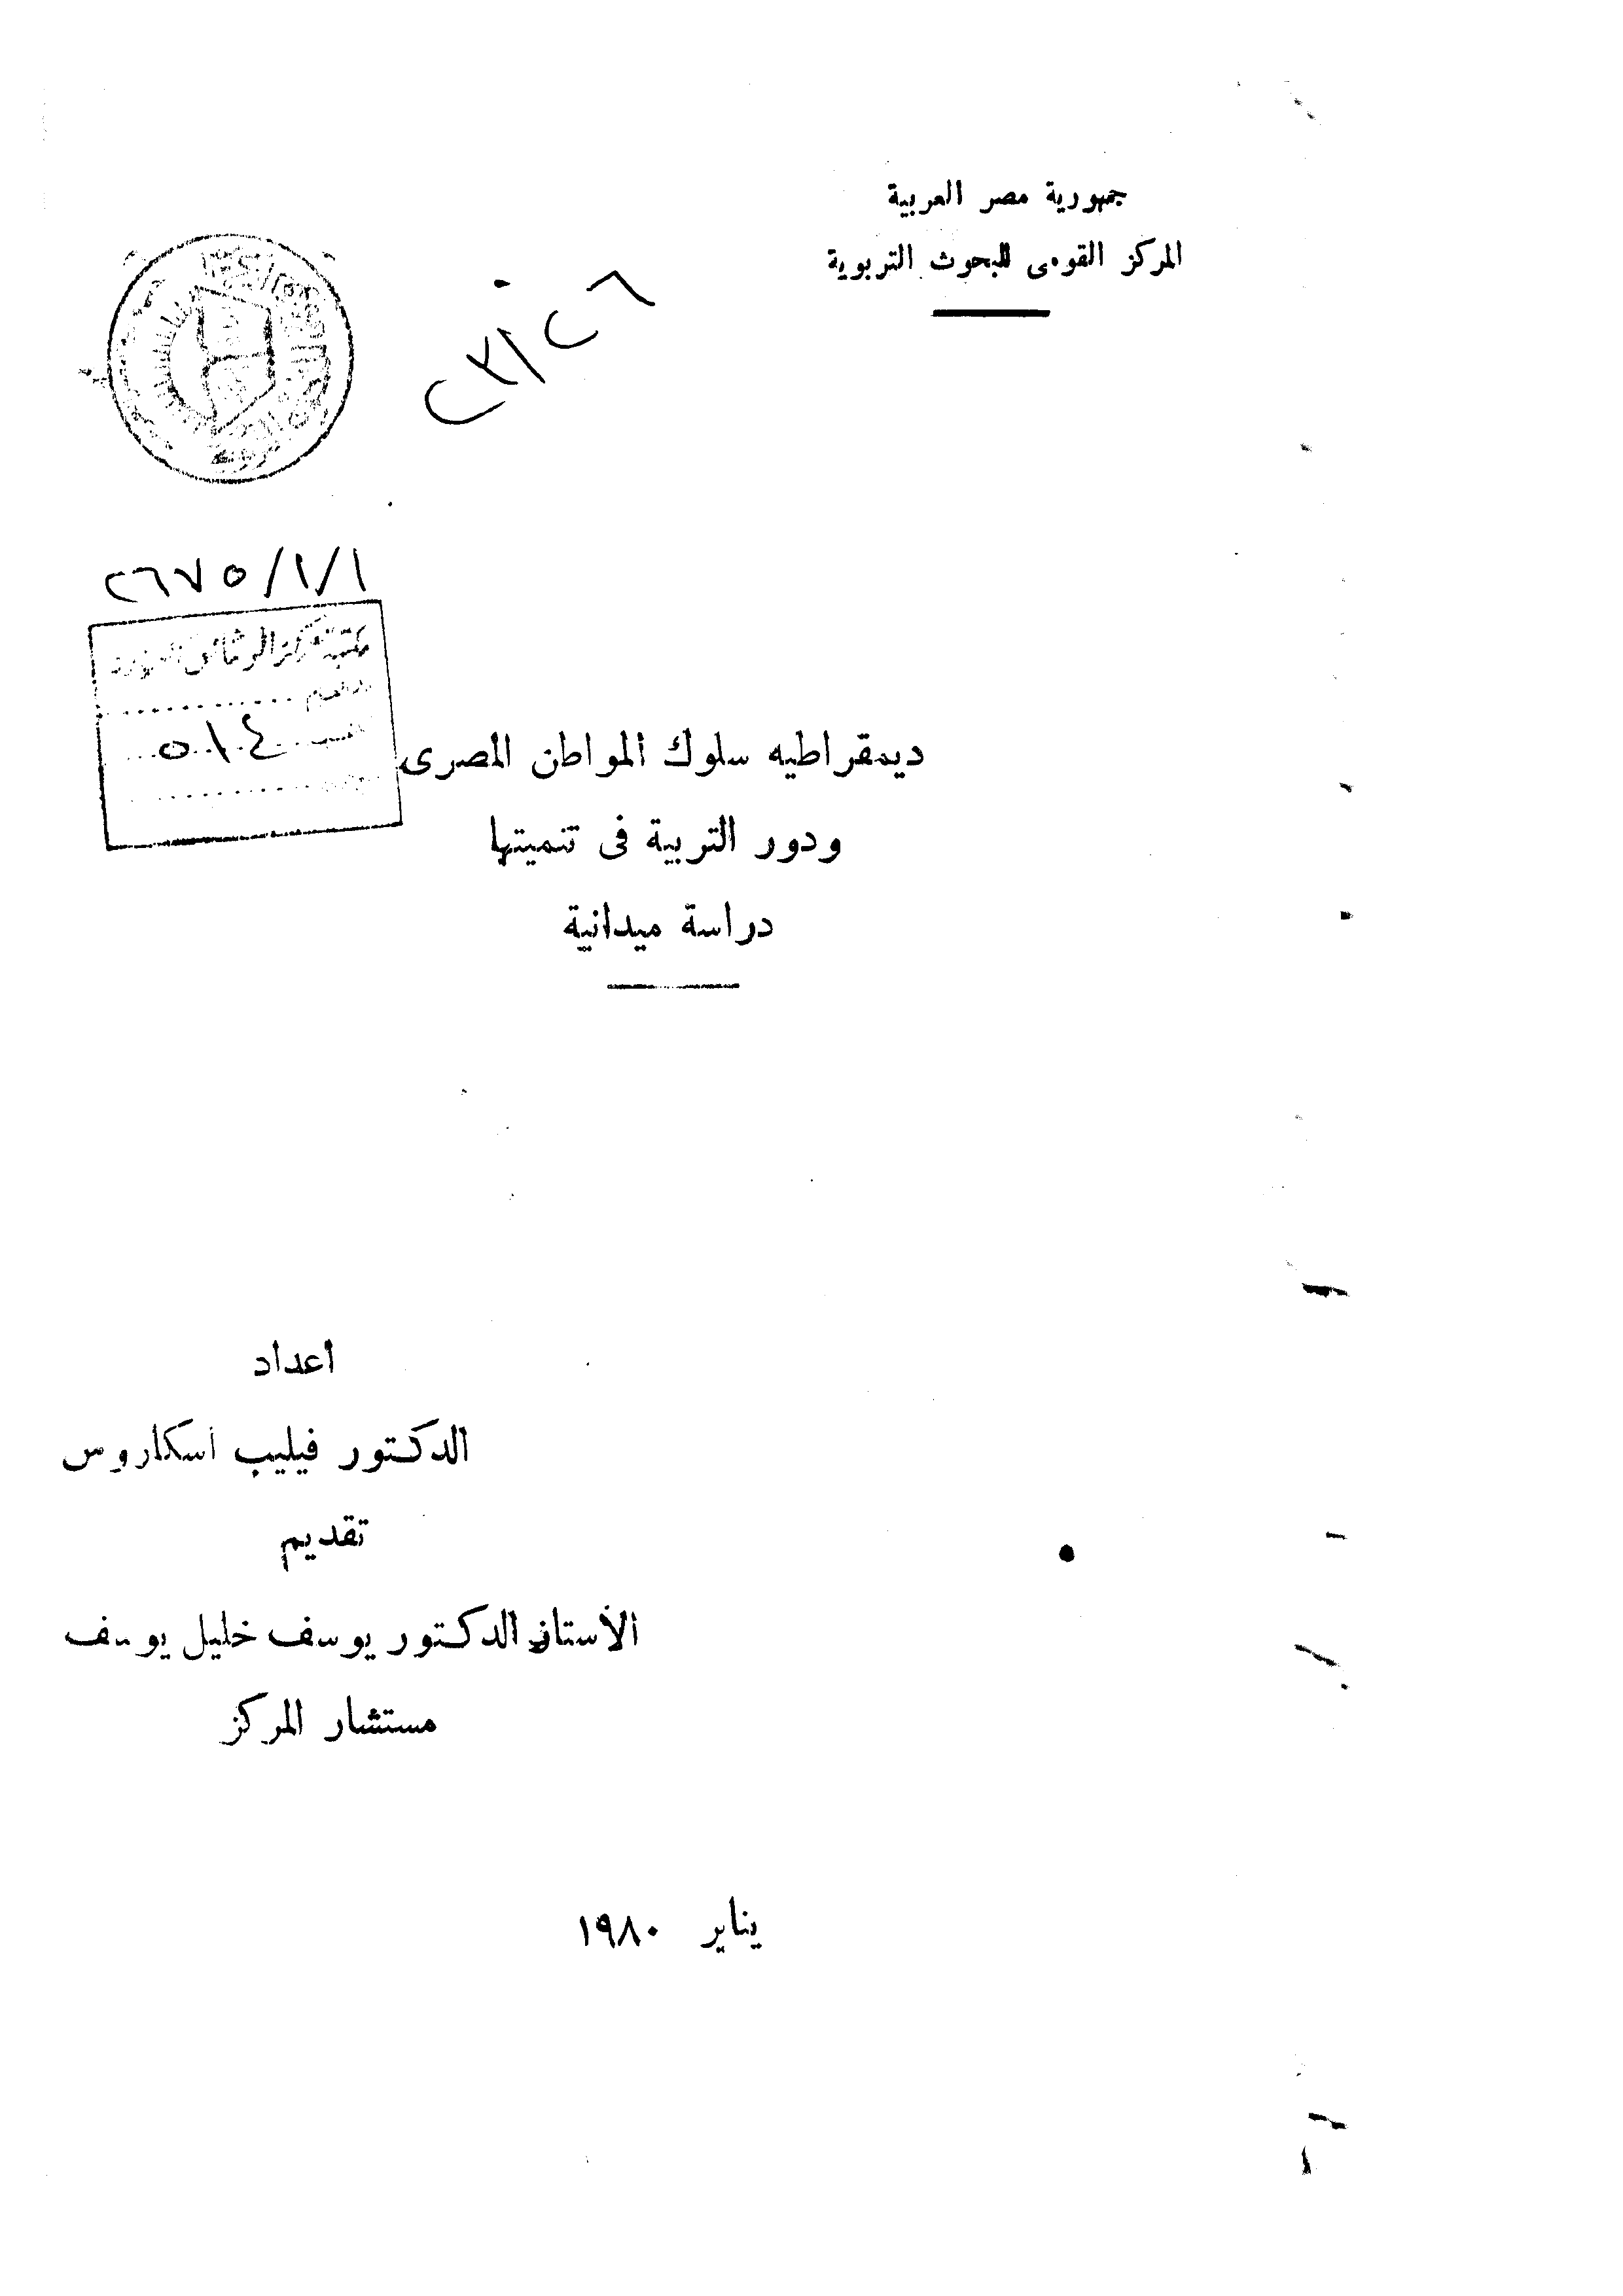 جمهورية مصر العربية
المركز القومى للبحوث التربوية
٢٦٧٥/١/١
٥١٤
ديمقراطيه سلوك المواطن المصرى
ودور التربية فى تنميتها
دراسة ميدانية
أعداد
الدكتور فيليب اسكاروس
تقديم
الأستاذ الدكتور يوسف خليل يوسف
مستشار المركز
يناير ١٩٨٠